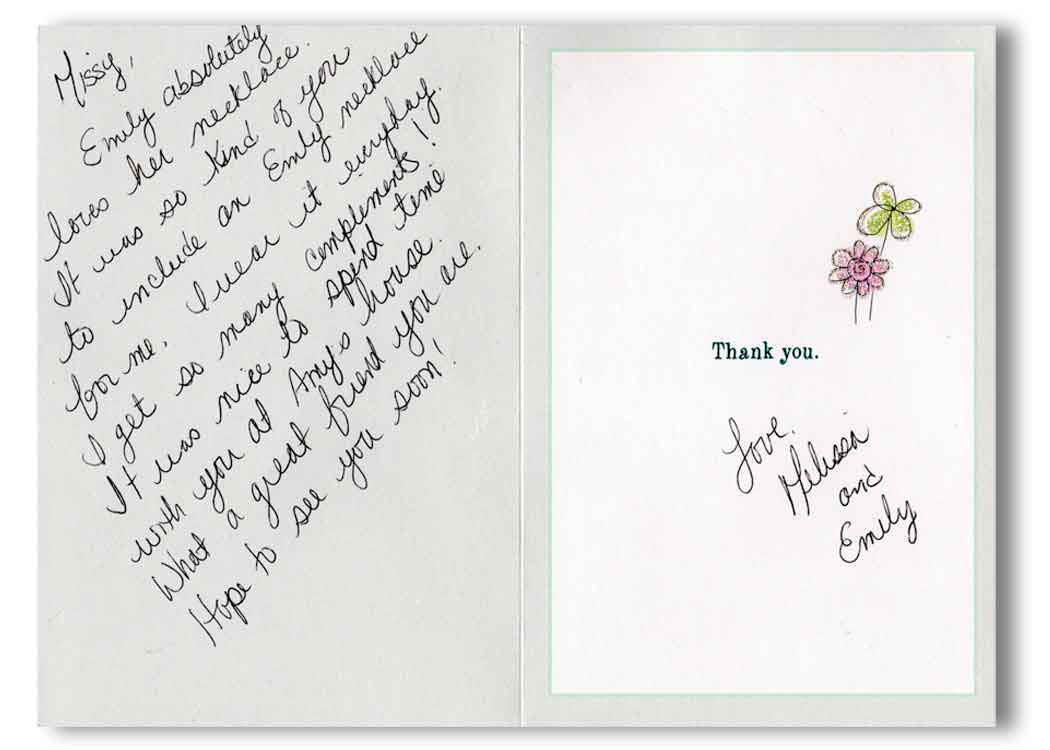 Missy,
Emily absolutely
loves her necklace.
It was so kind of you
to include an Emily necklace
for me. I wear it everyday.
I get so many complements!
It was nice to spend time
with you at Amy's house.
What a great friend you are.
Hope to see you soon!
Thank you.
Love,
Melissa
and
Emily